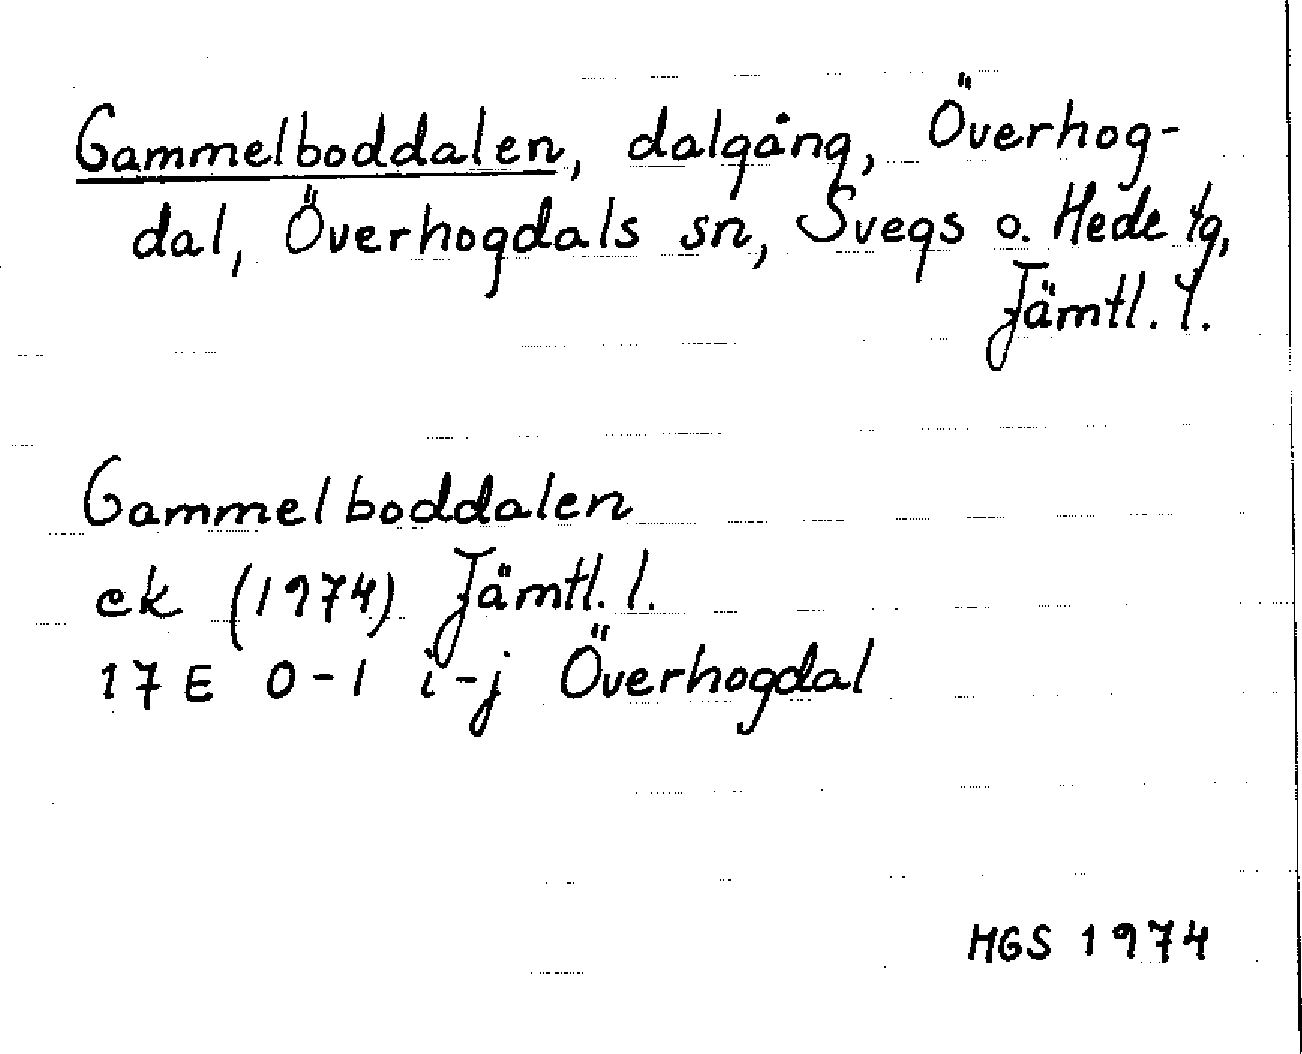 Gammelboddalen, dalgång, Överhog-
dal, Överhogdals sn, Svegs o. Hede tg,
Jämtl. l.
Gammelboddalen
ek (1974) Jämtl. l.
17 E 0-1 i-j Överhogdal
MGS 1974